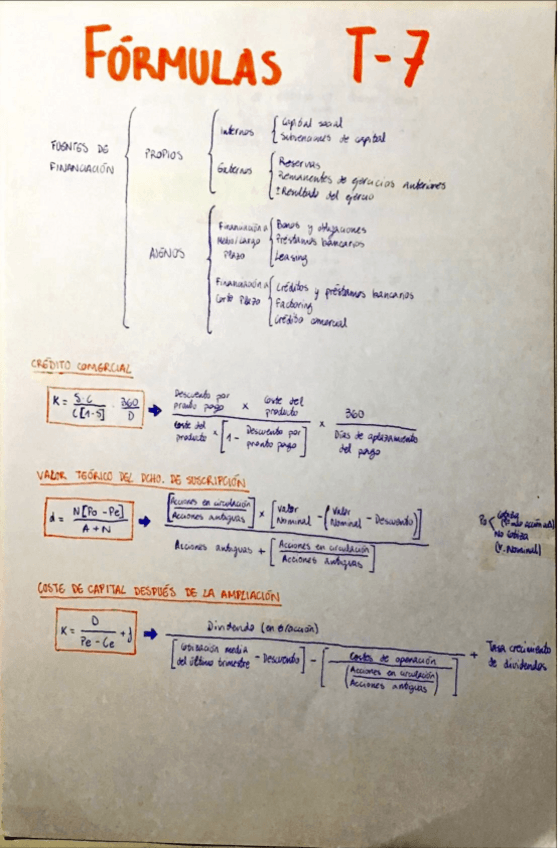 FÓRMULAS T-7
FUENTES DE
FINANCIACIÓN
PROPIOS
Internos
Capital social
Subvenciones de capital
Externos
Reservas
Remanentes de ejercicios anteriores
± Resultado del ejercicio
AJENOS
Financiación a
Medio/Largo
Plazo
Bonos y obligaciones
Préstamos bancarios
Leasing
Financiación a
Corto Plazo
Créditos y préstamos bancarios
Factoring
Crédito comercial
CRÉDITO COMERCIAL
K = S·C / C[1-S] · 360 / D → Descuento por pronto pago × Coste del producto / Coste del producto × [1 - Descuento por pronto pago] × 360 / Días de aplazamiento del pago
VALOR TEÓRICO DEL DCHO. DE SUSCRIPCIÓN
d = N[Po - Pe] / A + N → [Acciones en circulación / Acciones antiguas] × [Valor Nominal - (Valor Nominal - Descuento)] / Acciones antiguas + [Acciones en circulación / Acciones antiguas]
Po
No cotiza
(V. Nominal)
COSTE DE CAPITAL DESPUÉS DE LA AMPLIACIÓN
K = D / Pe - Ce + g → Dividendo (en €/acción) / [Cotización media del último trimestre - Descuento] - [Costes de operación / (Acciones en circulación / Acciones antiguas)] + Tasa crecimiento de dividendos